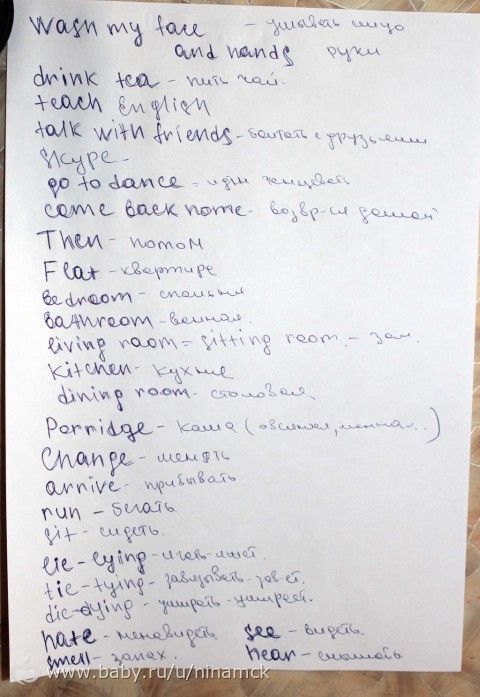 Wash my face - умывать лицо
and hands руки
drink tea - пить чай.
teach English
talk with friends - болтать с друзьями
Skype -
go to dance - идти танцевать
come back home - возвр-ся домой
Then - потом
Flat - квартире
Bedroom - спальня
Bathroom - ванная
living room = sitting room. - зал.
Kitchen - кухня
dining room - столовая
Porridge - каша (овсяная, ...)
Change - менять
arrive - прибывать
run - бегать
sit - сидеть.
lie - lying -
tie - tying - завязывать -
die - dying - умирать - умирает.
hate - ненавидеть see - видеть.
smell - запах. hear - слышать
www.baby.ru/u/ninamck